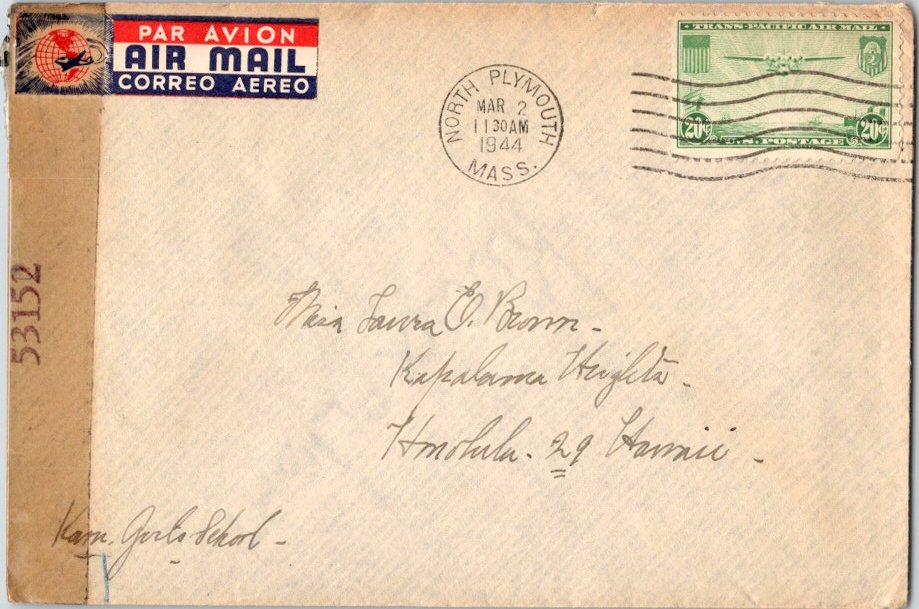 PAR AVION
AIR MAIL
CORREO AEREO
NORTH PLYMOUTH
MAR 2
11 30 AM
1944
MASS.
TRANS-PACIFIC AIR MAIL
20¢ 20¢
U.S. POSTAGE
53152
Miss Laura E. Brown -
Kapalama Heights -
Honolulu - 29 Hawaii -
Kam. Girls School -